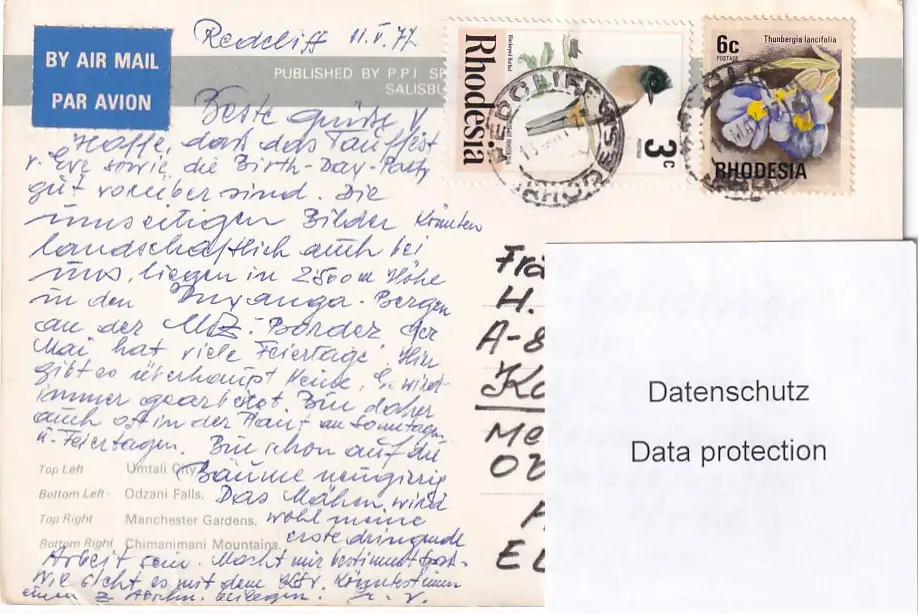 BY AIR MAIL
PAR AVION
Redcliff 11.V.77
PUBLISHED BY P.P.I.
SALISBU
Rhodesia
3c
6c
POSTAGE
Thunbergia lancifolia
RHODESIA
Beste Grüße V.
Hoffe, dass das Tauffest
v. Eve sowie die Birth-Day-Party
gut vorüber sind. Die
umseitigen Bilder könnten
landschaftlich auch bei
uns, liegen in 2500m Höhe
in den Inyanga-Bergen
an der Border der
Mai hat viele Feiertage. Hier
gibt es überhaupt keine, es wird
immer gearbeitet. Bin daher
auch oft in der an Sonntagen
u. Feiertagen. Bin schon auf die
Bäume neugierig
Top Left Umtali City
Bottom Left - Odzani Falls.
Das Mähen wird
Top Right Manchester Gardens,
wohl meine
Bottom Right Chimanimani Mountains.
erste dringende
Arbeit sein. Macht mir bestimmt Spass.
Wie steht es mit dem Könntest immer
einen z. beilegen.
Frä
H.
A-8
Ka
Me
E
Datenschutz
Data protection